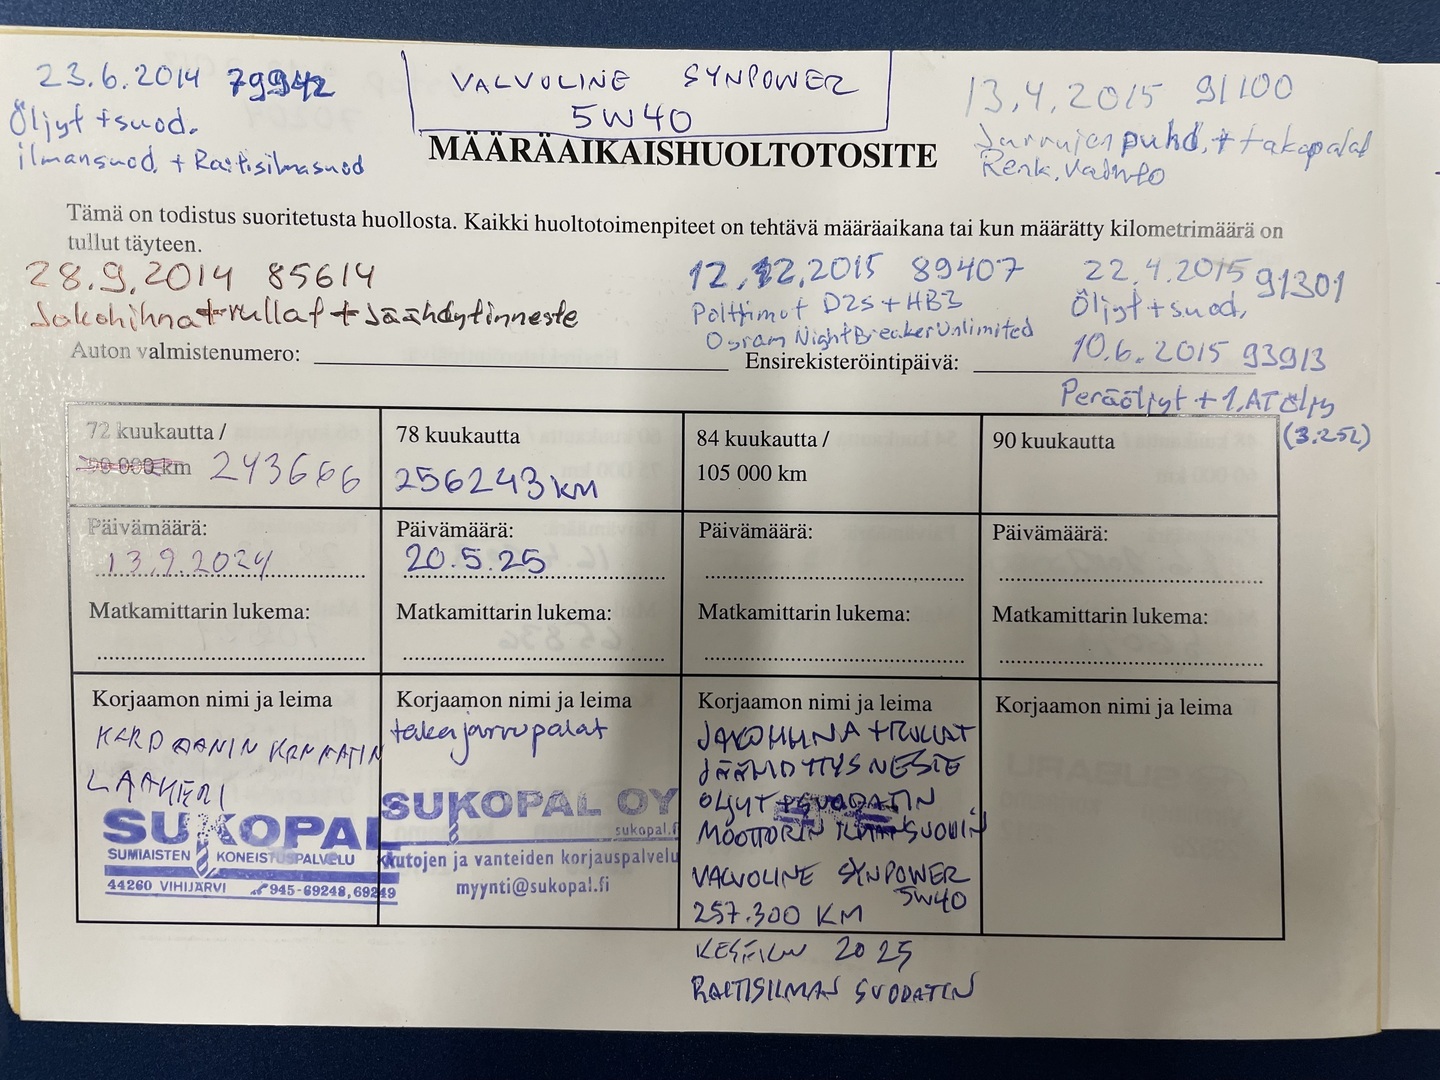 23.6.2014 79942
Öljyt + suod.
ilmansuod. + Raitisilmasuod
VALVOLINE SYNPOWER
5W40
13.4.2015 91100
Jarrujen puhd. + takapalat
Renk. vaihto
MÄÄRÄAIKAISHUOLTOTOSITE
Tämä on todistus suoritetusta huollosta. Kaikki huoltotoimenpiteet on tehtävä määräaikana tai kun määrätty kilometrimäärä on
tullut täyteen.
28.9.2014 85614
Jakohihna+rullat + Jäähdytinneste
12.12.2015 89407
Polttimot D2s + HB3
Osram NightBreakerUnlimited
22.4.2015 91301
Öljyt + suod.
10.6.2015 93913
Peräöljyt + 1.AT öljy
(3.25L)
Auton valmistenumero:
Ensirekisteröintipäivä:
72 kuukautta /
90 000 km 243666
Päivämäärä:
13.9.2024
Matkamittarin lukema:
Korjaamon nimi ja leima
KARDAANIN KANNATIN
LAAKERI
SUKOPAL
SUMIAISTEN KONEISTUSPALVELU
44260 VIHIJÄRVI 945-69248, 69249
78 kuukautta
256243 KM
Päivämäärä:
20.5.25
Matkamittarin lukema:
Korjaamon nimi ja leima
takajarrupalat
SUKOPAL OY
sukopal.f
Autojen ja vanteiden korjauspalvelu
myynti@sukopal.fi
84 kuukautta /
105 000 km
Päivämäärä:
Matkamittarin lukema:
Korjaamon nimi ja leima
JAKOHIHNA + RULLAT
JÄÄHDYTYSNESTE
ÖLJYT + SUODATIN
MOOTTORIN ILMANSUODIN
VALVOLINE SYNPOWER
5W40
257.300 KM
KESÄKUU 2025
RAITISILMAN SUODATIN
90 kuukautta
Päivämäärä:
Matkamittarin lukema:
Korjaamon nimi ja leima